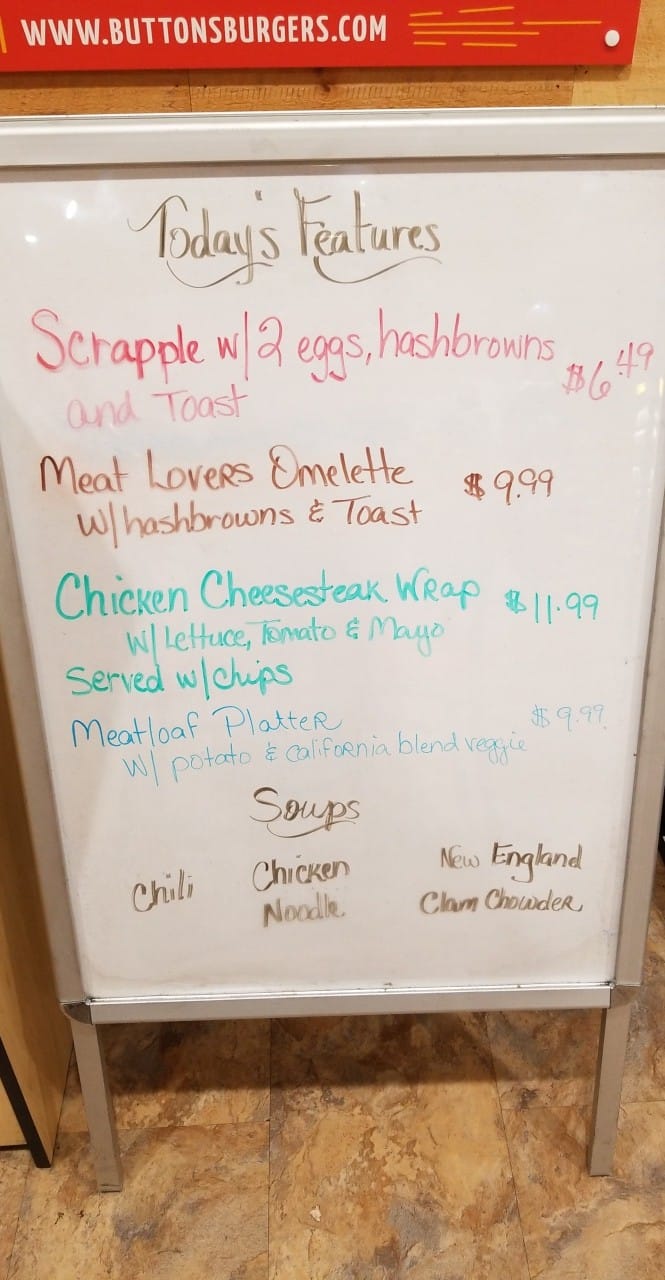 WWW.BUTTONSBURGERS.COM
Today's Features
Scrapple w/2 eggs, hashbrowns
and Toast $6.49
Meat Lovers Omelette $9.99
w/hashbrowns & Toast
Chicken Cheesesteak Wrap $11.99
w/ Lettuce, Tomato & Mayo
Served w/chips
Meatloaf Platter $9.99
w/ potato & california blend veggie
Soups
Chili Chicken Noodle New England Clam Chowder